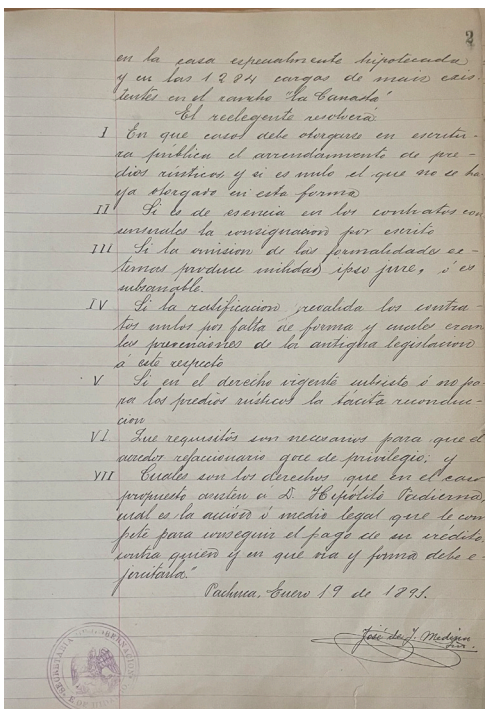 2
en la casa especialmente hipotecada
y en las 1284 cargas de maiz exis-
tentes en el rancho "La Canada"
El reelegente resolverá
I En que casos debe otorgarse en escritu-
ra pública el arrendamiento de pre-
dios rústicos y si es nulo el que no se ha-
ya otorgado en esta forma
II Si es de esencia en los contratos con-
sensuales la consignacion por escrito
III Si la omision de las formalidades es-
ternas produce nulidad ipso jure, ó es
subsanable.
IV Si la ratificacion revalida los contra-
tos nulos por falta de forma y cuales eran
las prevenciones de la antigua legislacion
á este respecto
V Si en el derecho vigente subsiste ó no pa-
ra los predios rústicos la tácita reconduc-
cion
VI Que requisitos son necesarios para que el
acredor refaccionario goce de privilegio; y
VII Cuales son los derechos que en el caso
propuesto asisten á D. Hipólito Padierna,
cual es la acción ó medio legal que le com-
pete para conseguir el pago de su crédito,
contra quien y en que via y forma debe e-
jercitarla."
Pachuca, Enero 19 de 1891.
José de J. Medina